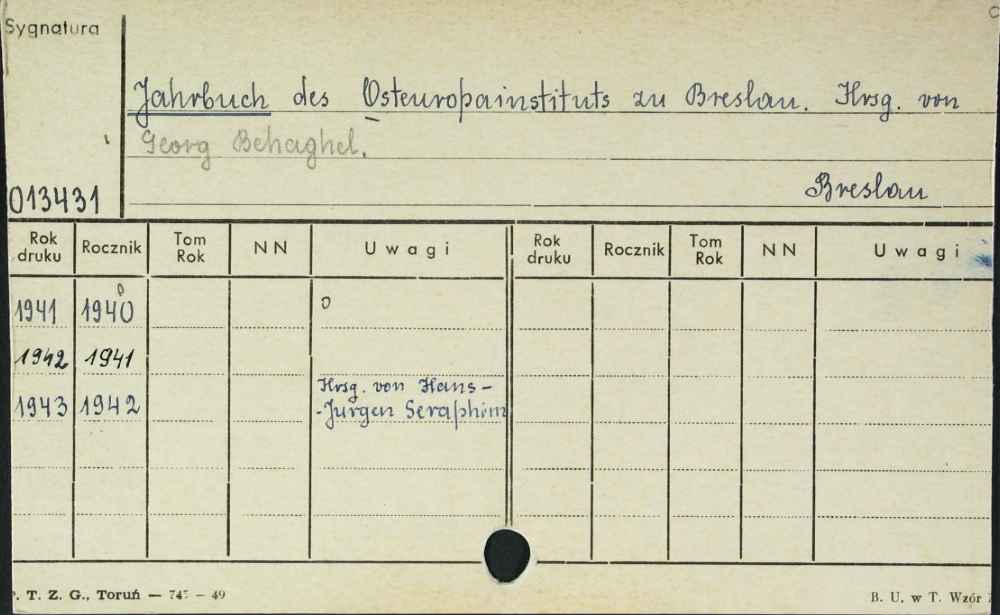 Sygnatura
Jahrbuch des Osteuropainstituts zu Breslau. Hrsg. von
Georg Behaghel.
013431
Breslau
Rok druku Rocznik Tom Rok NN Uwagi Rok druku Rocznik Tom Rok NN Uwagi
1941 1940
1942 1941
Hrsg. von Hans-
1943 1942 -Jurgen Seraphim
. T. Z. G., Toruń — 745 — 49
B. U. w T. Wzór